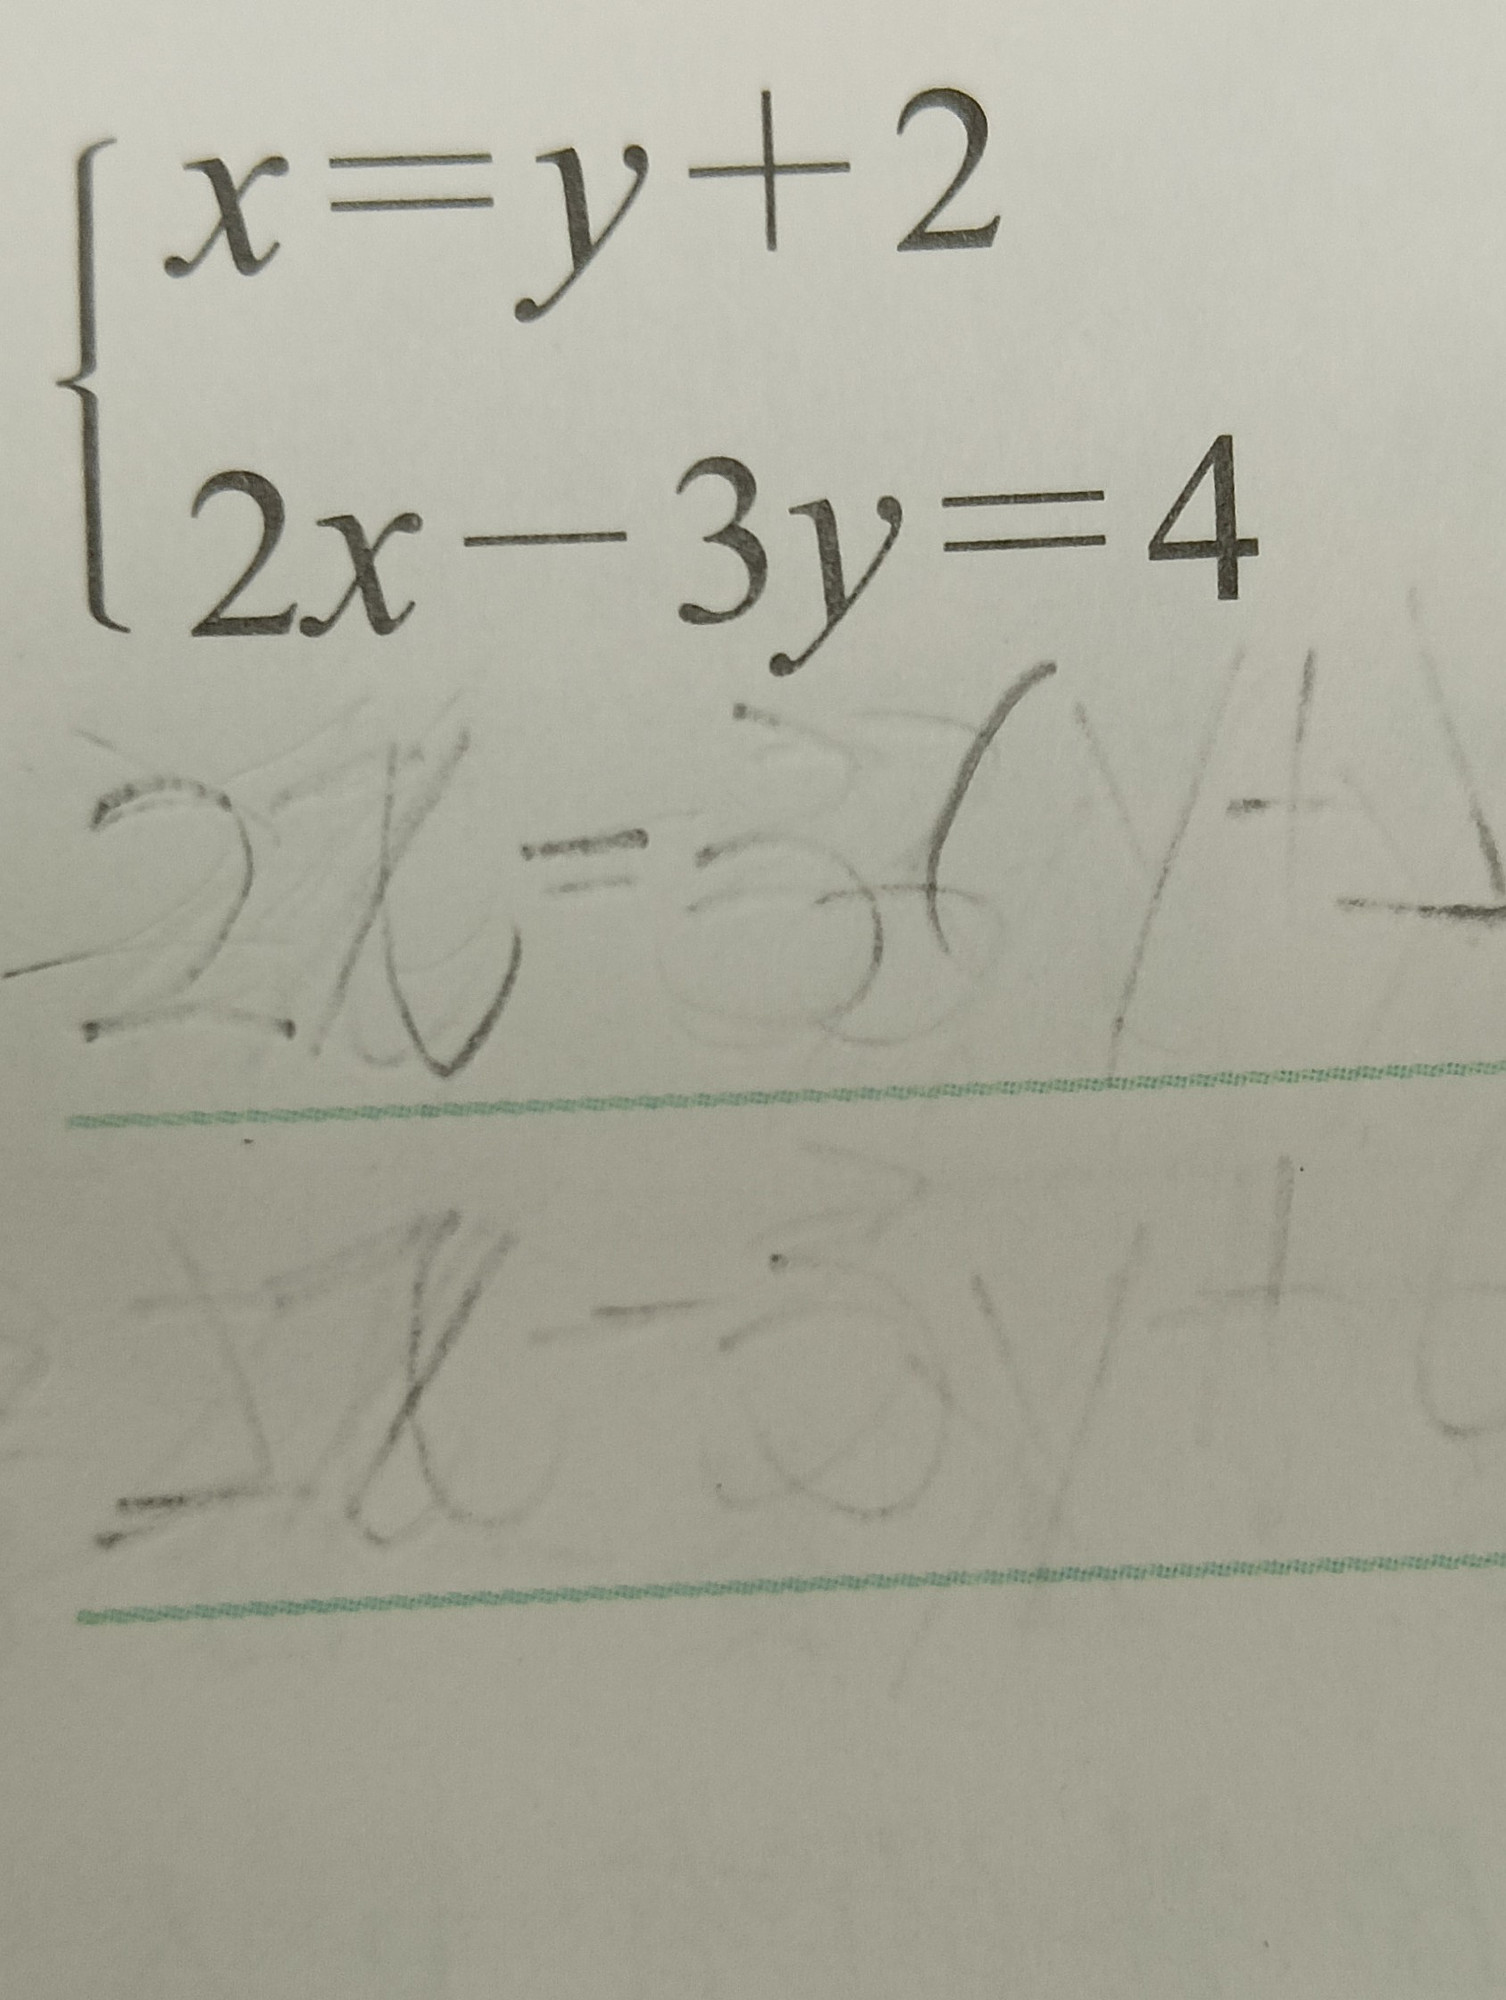 x=y+2
2x-3y=4
2x=3(y+
2x-3y+